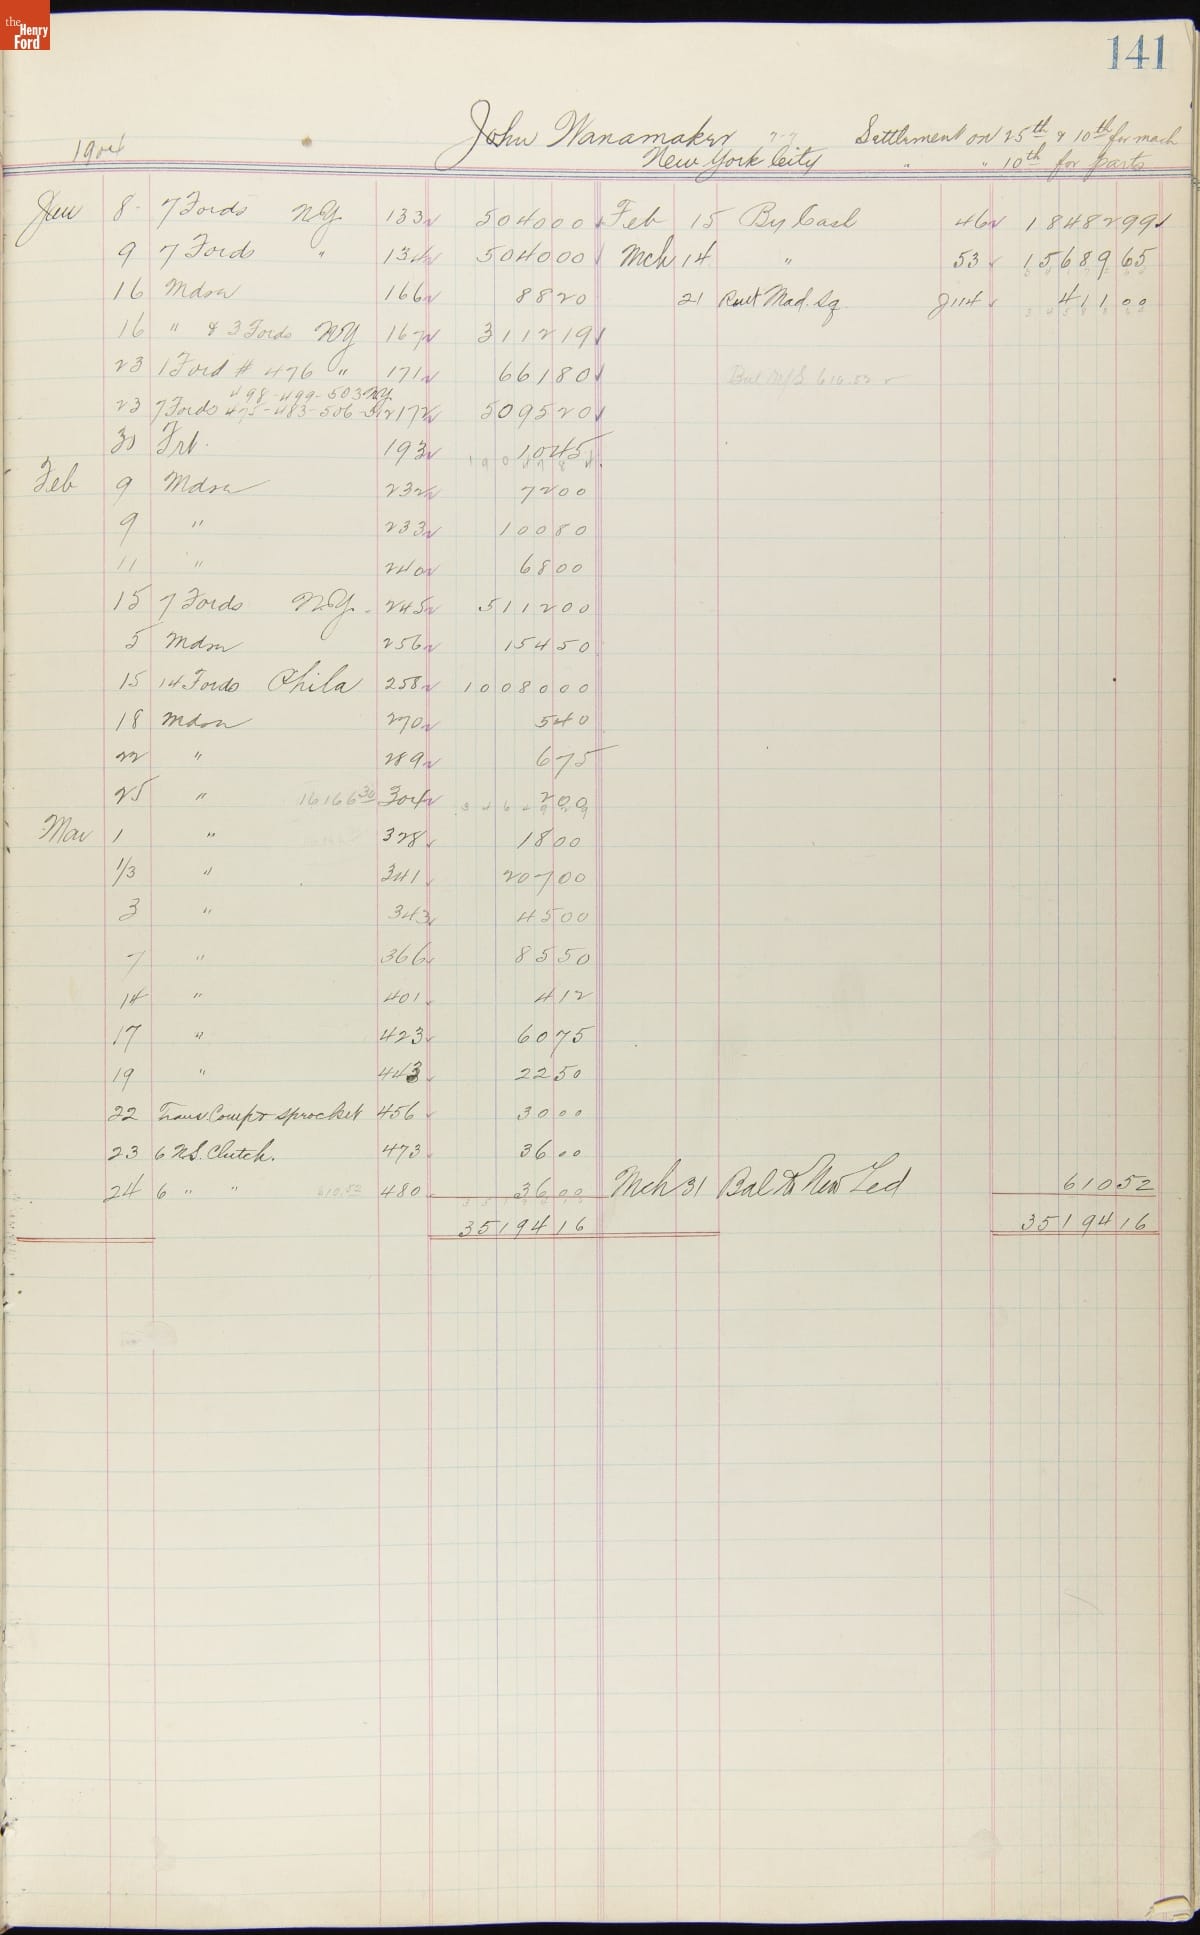 the Henry Ford
141
1904
John Wanamaker
Settlement on 25th & 10th for mach
New York City
" " 10th for parts
Jan 8 7 Fords NY 133 504000 Feb 15 By Cash 46 1848299
9 7 Fords " 134 504000 Mch 14 " 53 1568965
16 Mdse 166 8820 21 Rect Mad. Sq J114 41100
16 " & 3 Fords NY 167 311219
23 1 Ford # 476 " 171 66180 Bal M/S 610.52
498-499-503 NY
23 7 Fords 475-483-506- 172 509520
30 Frt. 193 1045
1904784
Feb 9 Mdse 232 7200
9 " 233 10080
11 " 240 6800
15 7 Fords N.Y. 245 511200
5 Mdse 256 15450
15 14 Fords Phila 258 1008000
18 Mdse 270 540
22 " 289 675
25 " 16166 30 304 200
3464929
Mar 1 " 328 1800
1/3 " 341 20700
3 " 343 4500
7 " 366 8550
14 " 401 412
17 " 423 6075
19 " 443 2250
22 Trans. Comp & sprocket 456 3000
23 6 H.S. Clutch. 473 3600
24 6 " " 610.52 480 3600 Mch 31 Bal to New Led 61052
3519416 3519416